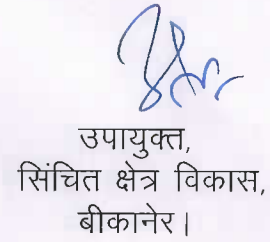 उपायुक्त,
सिंचित क्षेत्र विकास,
बीकानेर।